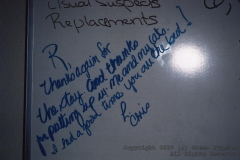 Usual Suspects
Replacements
R,
Thanks again for
the stay and thanks
for putting up w/ me and my cats.
I had a good time you are the best!
Chris
Copyright
All Rights